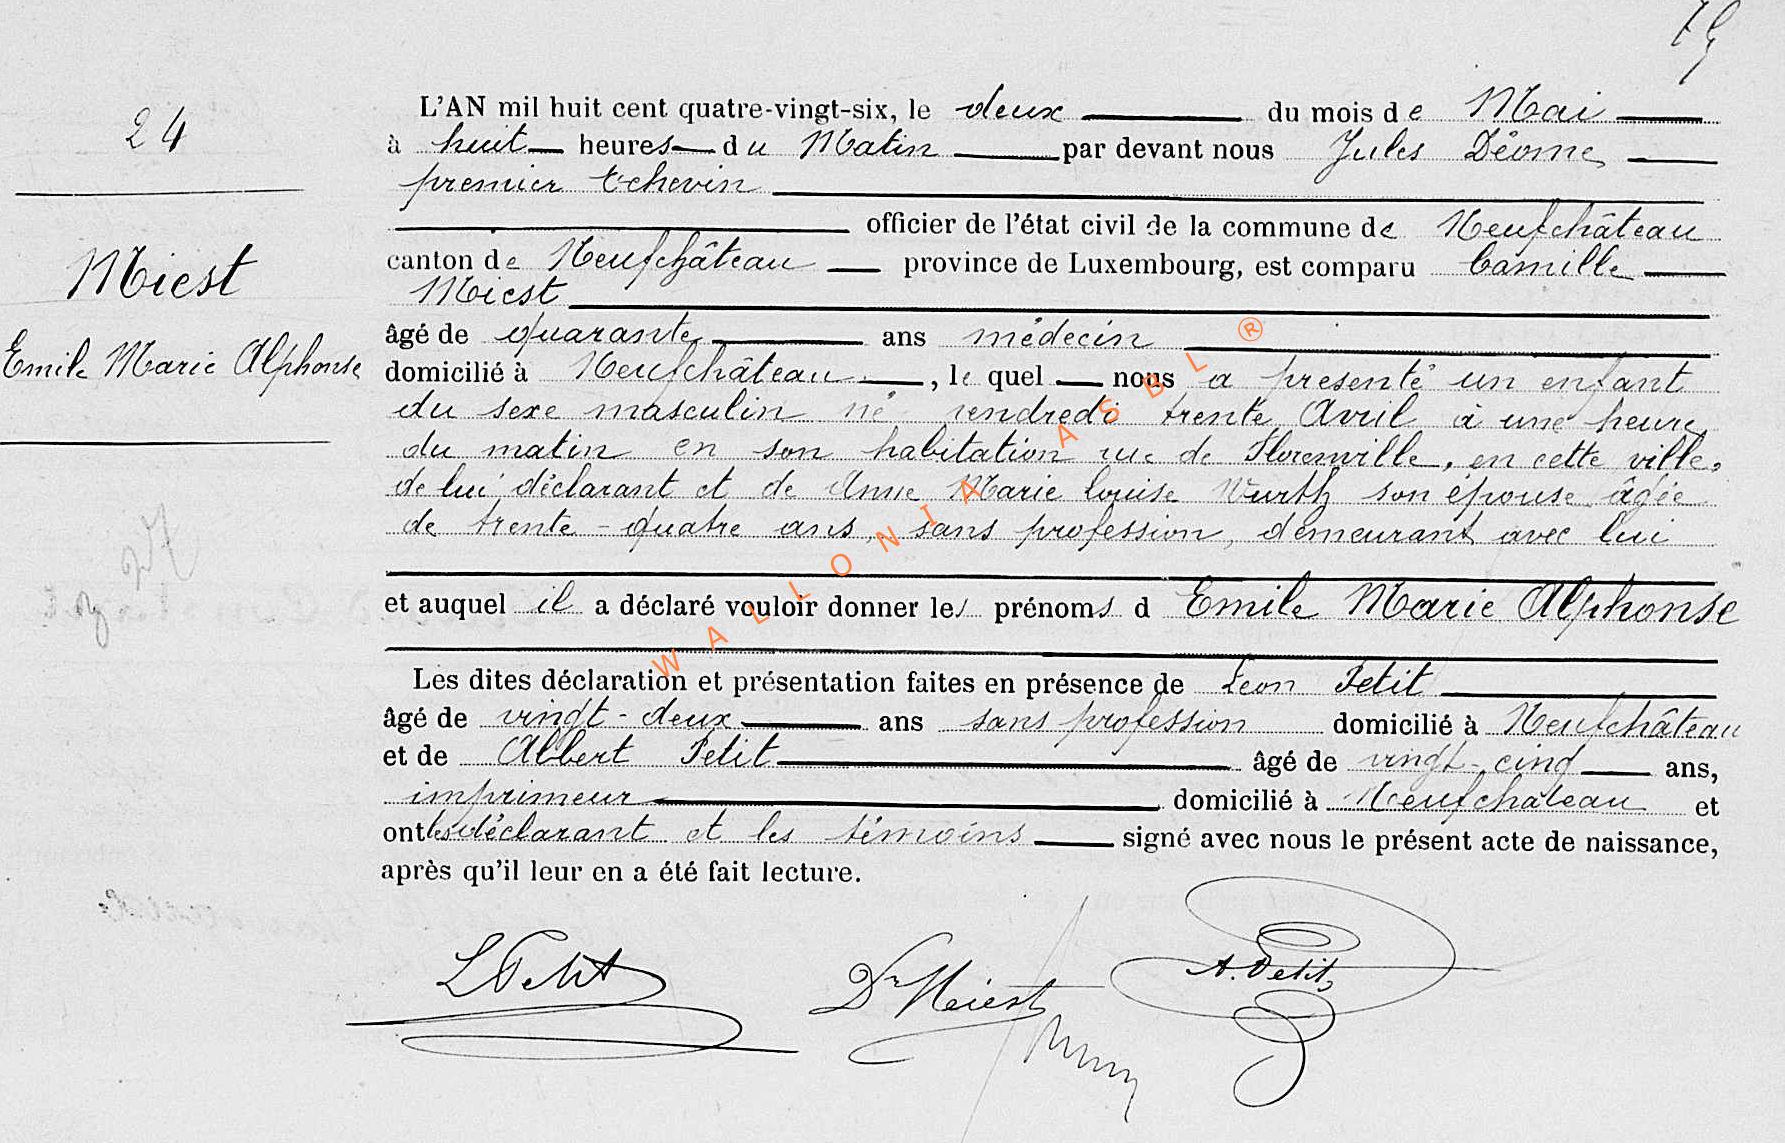 79
24
Miest
Emile Marie Alphonse
L'AN mil huit cent quatre-vingt-six, le deux du mois de Mai
à huit heures du Matin par devant nous Jules Déome
premier Echevin
officier de l'état civil de la commune de Neufchâteau
canton de Neufchâteau province de Luxembourg, est comparu Camille
Miest
âgé de quarante ans médecin
domicilié à Neufchâteau, le quel nous a présenté un enfant
du sexe masculin né vendredi trente Avril à une heure
du matin en son habitation rue de Florenville, en cette ville,
de lui déclarant et de Anne Marie Louise Wurth son épouse âgée
de trente-quatre ans, sans profession, demeurant avec lui
et auquel il a déclaré vouloir donner les prénoms d Emile Marie Alphonse
Les dites déclaration et présentation faites en présence de Léon Petit
âgé de vingt-deux ans sans profession domicilié à Neufchâteau
et de Albert Petit âgé de vingt-cinq ans,
imprimeur domicilié à Neufchâteau et
ont les déclarant et les témoins signé avec nous le présent acte de naissance,
après qu'il leur en a été fait lecture.
L Petit
Dr Miest
A. Petit
WALLONIA ASBL ®